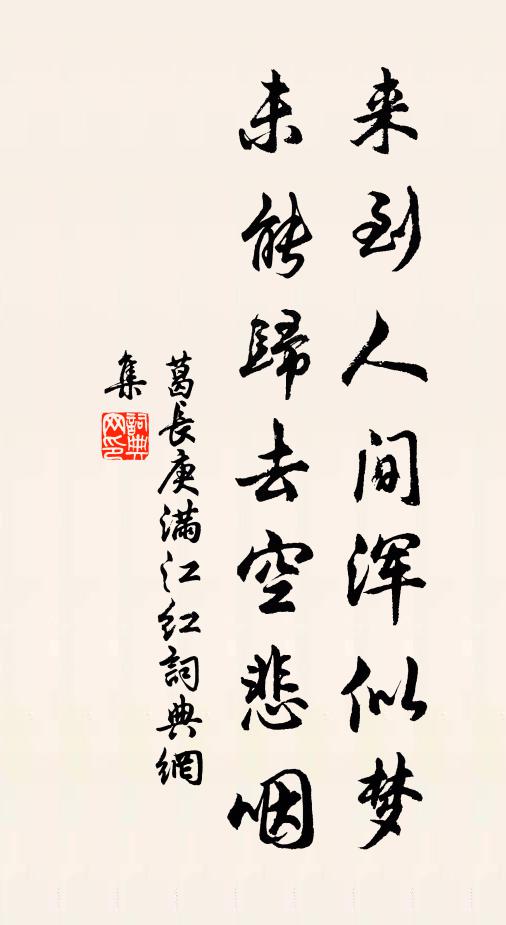 来到人间浑似梦
未能歸去空悲咽
葛長庚满江红詞典網
集
詞典网印